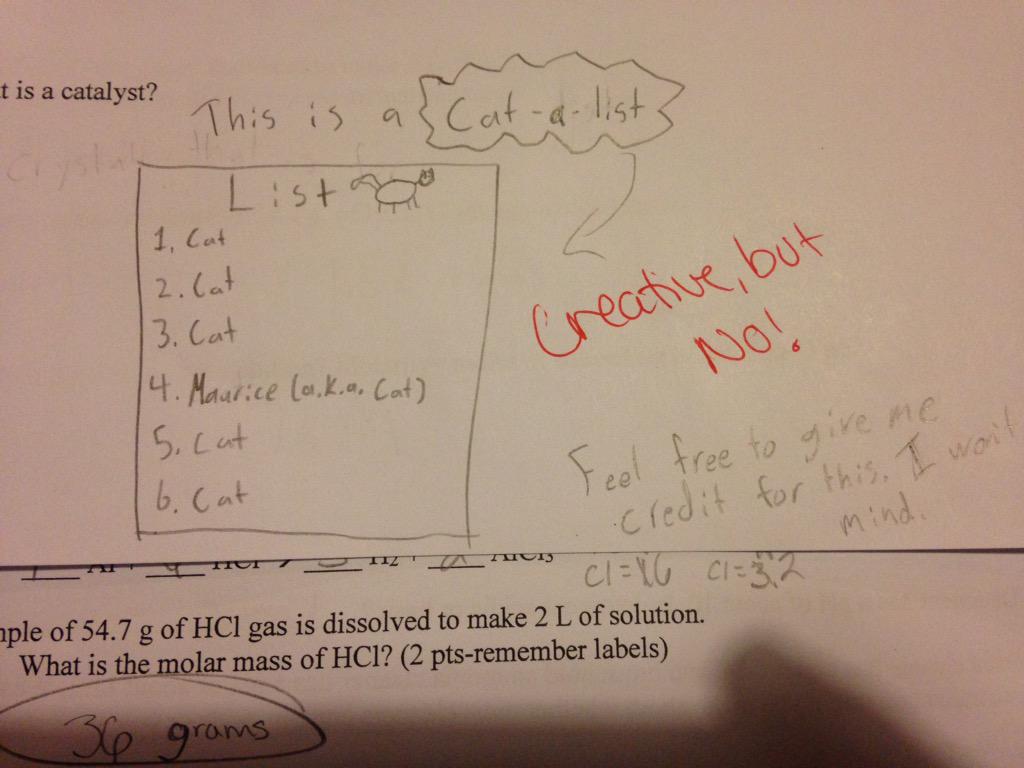 t is a catalyst?
This is a Cat-a-list
List
1. Cat
2. Cat
3. Cat
4. Maurice (a.k.a. Cat)
5. Cat
6. Cat
Creative, but
No!
Feel free to give me
credit for this. I won't
mind.
Cl=3.2
mple of 54.7 g of HCl gas is dissolved to make 2 L of solution.
What is the molar mass of HCl? (2 pts-remember labels)
36 grams